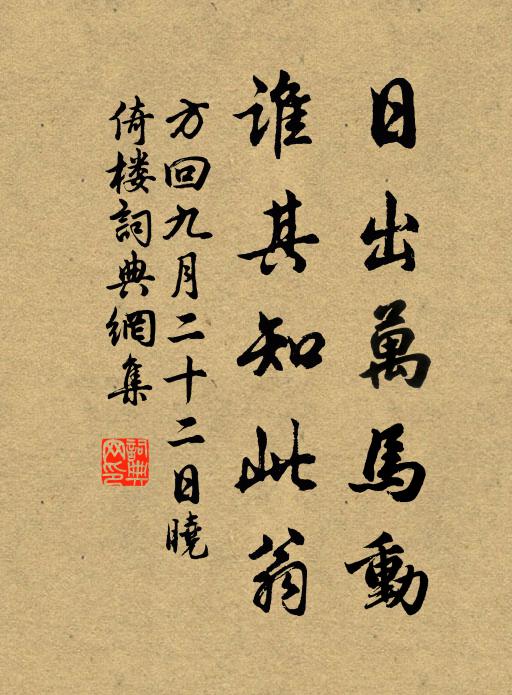 日出萬馬動
誰其知此翁
方回九月二十二日曉
倚楼詞典網集
詞典网印